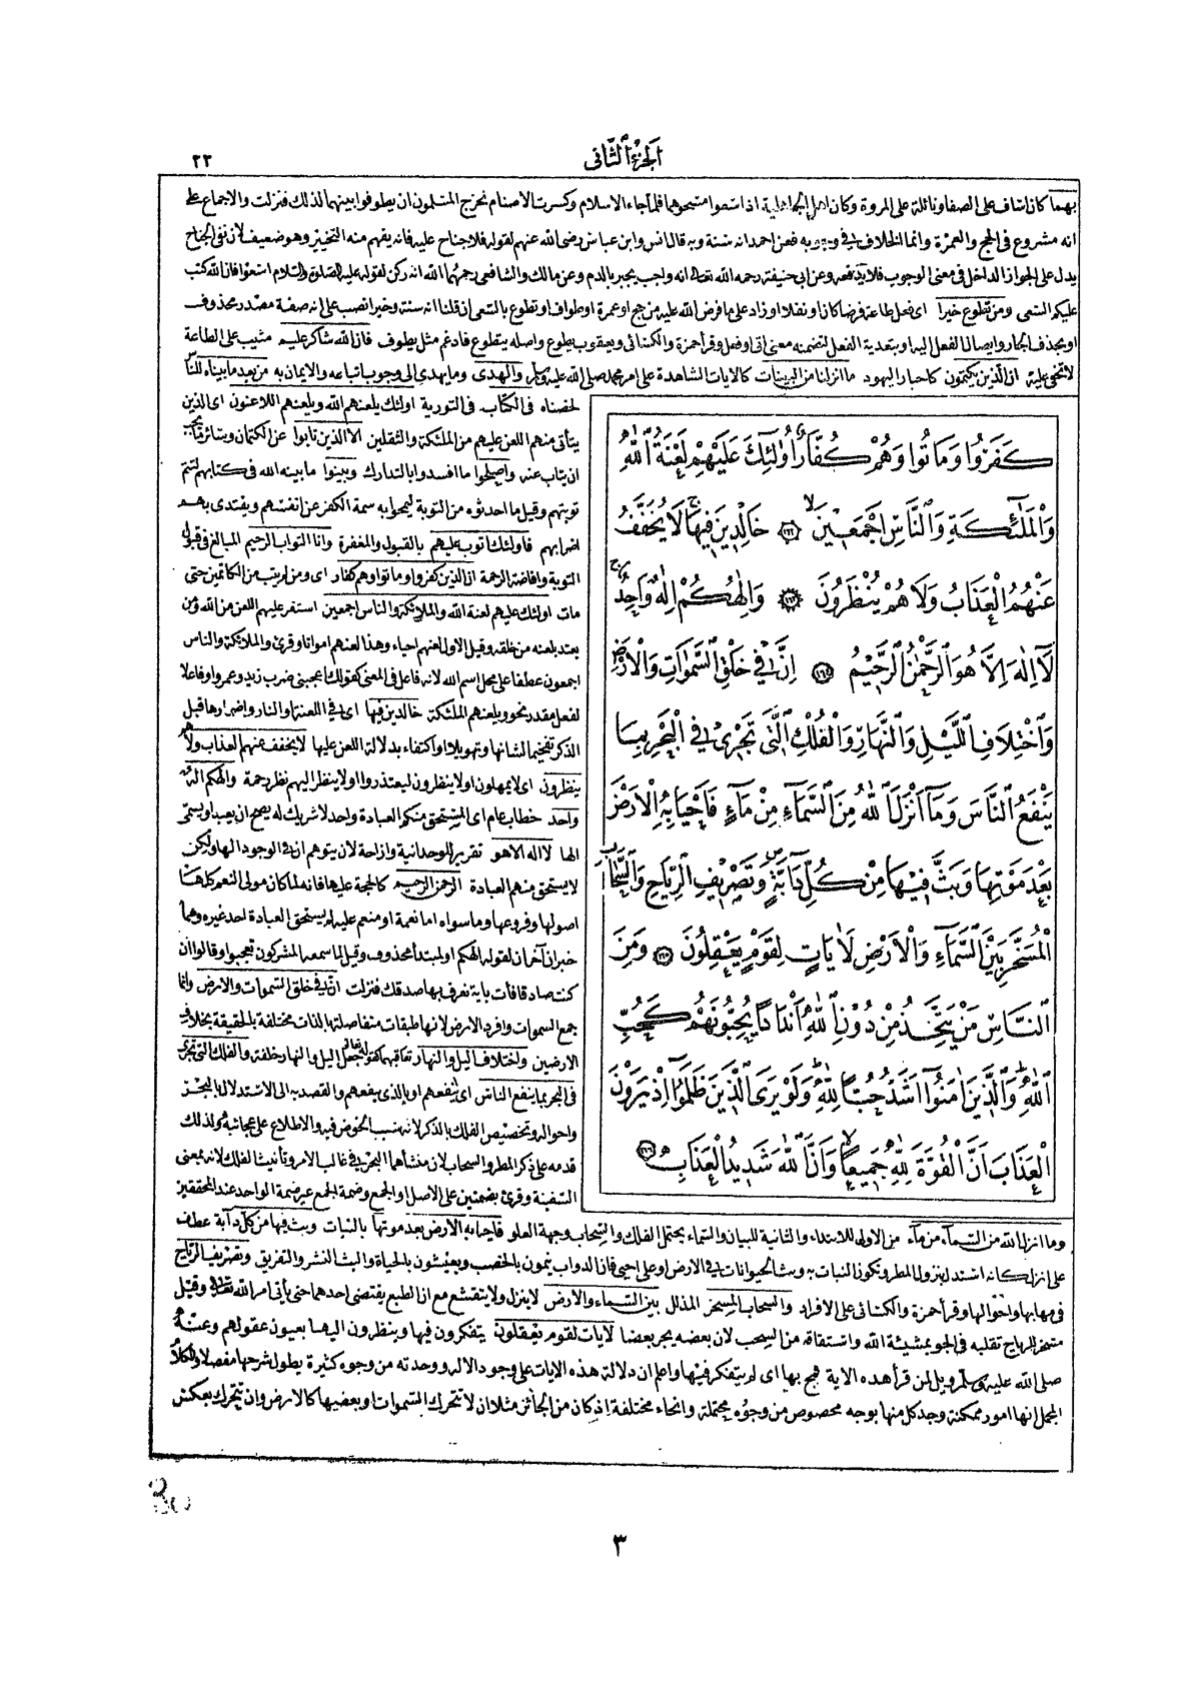 الجزء الثانى
٢٣
بهما كان اساف على الصفا ونائلة على المروة وكان اهل الجاهلية اذا سعوا مسحوهما فلما جاء الاسلام وكسرت الاصنام تحرج المسلمون ان يطوفوا بينهما لذلك فنزلت والاجماع على
انه مشروع فى الحج والعمرة وانما الخلاف فى وجوبه فعن احمد انه سنة وبه قال انس وابن عباس رضى الله عنهم لقوله فلا جناح عليه فانه يفهم منه التخيير وهو ضعيف لان نفى الجناح
يدل على الجواز الداخل فى معنى الوجوب فلا يدفعه وعن ابى حنيفة رحمه الله تعالى انه واجب يجبر بالدم وعن مالك والشافعى رحمهما الله انه ركن لقوله عليه الصلوة والسلام اسعوا فان الله كتب
عليكم السعى ومن تطوع خيرا اى فعل طاعة فرضا كان او نفلا او زاد على ما فرض الله عليه من حج او عمرة او طواف او تطوع بالسعى ان قلنا انه سنة وخيرا نصب على انه صفة مصدر محذوف
او بحذف الجار وايصال الفعل اليه او بتعدية الفعل لتضمنه معنى اتى او فعل وقرأ حمزة والكسائى ويعقوب يطوع واصله يتطوع فادغم مثل يطوف فان الله شاكر عليم مثيب على الطاعة
لا تخفى عليه ان الذين يكتمون كاحبار اليهود ما انزلنا من البينات كالايات الشاهدة على امر محمد صلى الله عليه وسلم والهدى وما يهدى الى وجوب اتباعه والايمان به من بعد ما بيناه للناس
لخصناه فى الكتاب فى التورية اولئك يلعنهم الله ويلعنهم اللاعنون اى الذين
يتأتى منهم اللعن عليهم من الملئكة والثقلين الا الذين تابوا عن الكتمان وسائر ما يجب
ان يتاب عنه واصلحوا ما افسدوا بالتدارك وبينوا ما بينه الله فى كتابهم لتتم
توبتهم وقيل ما احدثوه من التوبة ليمحوا به سمة الكفر عن انفسهم ويقتدى بهم
اضرابهم فاولئك اتوب عليهم بالقبول والمغفرة وانا التواب الرحيم المبالغ فى قبول
التوبة وافاضة الرحمة ان الذين كفروا وماتوا وهم كفار اى ومن لم يتب من الكاتمين حتى
مات اولئك عليهم لعنة الله والملائكة والناس اجمعين استقر عليهم اللعن من الله ومن
يعتد بلعنه من خلقه وقيل الاول لعنهم احياء وهذا لعنهم امواتا وقرئ والملائكة والناس
اجمعون عطفا على محل اسم الله لانه فاعل فى المعنى كقولك اعجبنى ضرب زيد وعمرو او فاعلا
لفعل مقدر نحو ويلعنهم الملئكة خالدين فيها اى فى اللعنة او النار واضمارها قبل
الذكر تفخيما لشانها وتهويلا او اكتفاء بدلالة اللعن عليها لا يخفف عنهم العذاب ولا هم
ينظرون اى لا يمهلون او لا ينظرون ليعتذروا او لا ينظر اليهم نظر رحمة والهكم اله
واحد خطاب عام اى المستحق منكم العبادة واحد لا شريك له يصح ان يعبد او يسمى
الها لا اله الا هو تقرير للوحدانية وازاحة لان يتوهم ان فى الوجود الها ولكن
لا يستحق منهم العبادة الرحمن الرحيم كالحجة عليها فانه لما كان مولى النعم كلها
اصولها وفروعها وما سواه اما نعمة او منعم عليه لم يستحق العبادة احد غيره وهما
خبران آخران لقوله الهكم او لمبتدأ محذوف وقيل لما سمعه المشركون تعجبوا وقالوا ان
كنت صادقا فات باية نعرف بها صدقك فنزلت ان فى خلق السموات والارض وانما
جمع السموات وافرد الارض لانها طبقات متفاصلة بالذات مختلفة بالحقيقة بخلاف
الارضين واختلاف اليل والنهار تعاقبهما كقوله تعالى جعل اليل والنهار خلفة والفلك التى تجرى
فى البحر بما ينفع الناس اى ينفعهم او بالذى ينفعهم والقصد به الى الاستدلال بالبحر
واحواله وتخصيص الفلك بالذكر لانه سبب الخوض فيه والاطلاع على عجائبه ولذلك
قدمه على ذكر المطر والسحاب لان منشأهما البحر فى غالب الامر وتأنيث الفلك لانه بمعنى
السفينة وقرئ بضمتين على الاصل او الجمع وضمة الجمع غير ضمة الواحد عند المحققين
كَفَرُوا وَمَاتُوا وَهُمْ كُفَّارٌ اُولٰٓئِكَ عَلَيْهِمْ لَعْنَةُ اللّٰهِ
وَالْمَلٰٓئِكَةِ وَالنَّاسِ اَجْمَعِينَ ﴿١٦١﴾ خَالِدِينَ فِيهَا لَا يُخَفَّفُ
عَنْهُمُ الْعَذَابُ وَلَا هُمْ يُنْظَرُونَ ﴿١٦٢﴾ وَاِلٰهُكُمْ اِلٰهٌ وَاحِدٌ
لَآ اِلٰهَ اِلَّا هُوَ الرَّحْمٰنُ الرَّحِيمُ ﴿١٦٣﴾ اِنَّ فِي خَلْقِ السَّمٰوَاتِ وَالْاَرْضِ
وَاخْتِلَافِ الَّيْلِ وَالنَّهَارِ وَالْفُلْكِ الَّتِي تَجْرِي فِي الْبَحْرِ بِمَا
يَنْفَعُ النَّاسَ وَمَآ اَنْزَلَ اللّٰهُ مِنَ السَّمَآءِ مِنْ مَآءٍ فَاَحْيَا بِهِ الْاَرْضَ
بَعْدَ مَوْتِهَا وَبَثَّ فِيهَا مِنْ كُلِّ دَآبَّةٍ وَتَصْرِيفِ الرِّيَاحِ وَالسَّحَابِ
الْمُسَخَّرِ بَيْنَ السَّمَآءِ وَالْاَرْضِ لَاٰيَاتٍ لِقَوْمٍ يَعْقِلُونَ ﴿١٦٤﴾ وَمِنَ
النَّاسِ مَنْ يَتَّخِذُ مِنْ دُونِ اللّٰهِ اَنْدَادًا يُحِبُّونَهُمْ كَحُبِّ
اللّٰهِ وَالَّذِينَ اٰمَنُوٓا اَشَدُّ حُبًّا لِلّٰهِ وَلَوْ يَرَى الَّذِينَ ظَلَمُوٓا اِذْ يَرَوْنَ
الْعَذَابَ اَنَّ الْقُوَّةَ لِلّٰهِ جَمِيعًا وَاَنَّ اللّٰهَ شَدِيدُ الْعَذَابِ ﴿١٦٥﴾
وما انزل الله من السماء من ماء من الاولى للابتداء والثانية للبيان والسماء يحتمل الفلك والسحاب وجهة العلو فاحيا به الارض بعد موتها بالنبات وبث فيها من كل دآبة عطف
على انزل كانه استدل بنزول المطر وتكون النبات به وبث الحيوانات فى الارض او على احيى فان الدواب ينمون بالخصب ويعيشون بالحياة والبث النشر والتفريق وتصريف الرياح
فى مهابها واحوالها وقرأ حمزة والكسائى على الافراد والسحاب المسخر المذلل بين السماء والارض لا ينزل ولا يتقشع مع ان الطبع يقتضى احدهما حتى يأتى امر الله تعالى وقيل
مسخر للرياح تقلبه فى الجو بمشيئة الله واشتقاقه من السحب لان بعضه يجر بعضا لايات لقوم يعقلون يتفكرون فيها وينظرون اليها بعيون عقولهم وعنه
صلى الله عليه وسلم ويل لمن قرأ هذه الاية فمج بها اى لم يتفكر فيها واعلم ان دلالة هذه الايات على وجود الاله ووحدته من وجوه كثيرة يطول شرحها مفصلا والكلام
المجمل انها امور ممكنة وجد كل منها بوجه مخصوص من وجوه محتملة وانحاء مختلفة اذ كان من الجائز مثلا ان لا تتحرك السموات او بعضها كالارض وان تتحرك بعكس
٣